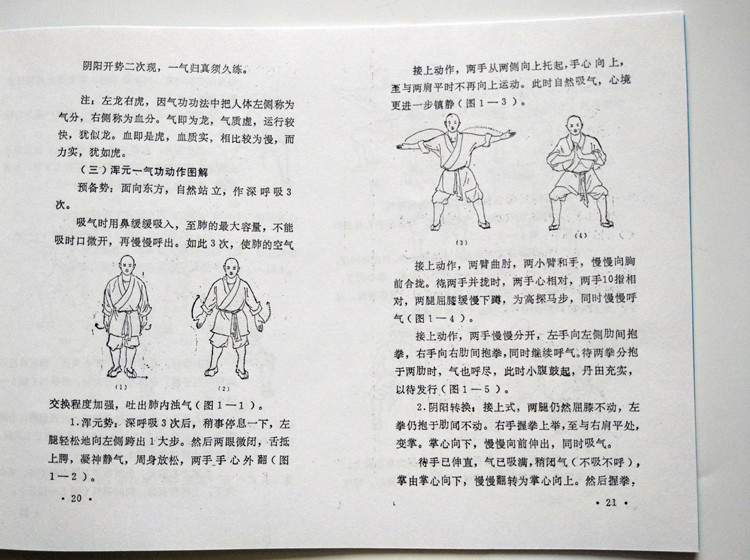 阴阳开势二次现，一气归真须久练。
注：左龙右虎，因气功功法中把人体左侧称为
气分，右侧称为血分。气即为龙，气质虚，运行较
快，犹似龙。血即是虎，血质实，相比较为慢，而
力实，犹如虎。
（三）浑元一气功动作图解
预备势：面向东方，自然站立，作深呼吸3
次。
吸气时用鼻缓缓吸入，至肺的最大容量，不能
吸时口微开，再慢慢呼出。如此3次，使肺的空气
(1)
(2)
交换程度加强，吐出肺内浊气（图1—1）。
1.浑元势：深呼吸3次后，稍事停息一下，左
腿轻松地向左侧跨出1大步。然后两眼微闭，舌抵
上腭，凝神静气，周身放松，两手手心外翻（图
1—2）。
·20·
接上动作，两手从两侧向上托起，手心向上，
至与两肩平时不再向上运动。此时自然吸气，心境
更进一步镇静（图1—3）。
(3)
(4)
接上动作，两臂曲肘，两小臂和手，慢慢向胸
前合拢。待两手并拢时，两手心相对，两手10指相
对，两腿屈膝缓慢下蹲，为高探马步，同时慢慢呼
气（图1—4）。
接上动作，两手慢慢分开，左手向左侧肋间抱
拳，右手向右肋间抱拳，同时继续呼气。待两拳分抱
于两肋时，气也呼尽，此时小腹鼓起，丹田充实，
以待发行（图1—5）。
2.阴阳转换：接上式，两腿仍然屈膝不动，左
拳仍抱于肋间不动。右手握拳上举，至与右肩平处，
变掌。掌心向下，慢慢向前伸出，同时吸气。
待手已伸直，气已吸满，稍闭气（不吸不呼），
掌由掌心向下，慢慢翻转为掌心向上。然后握拳，
·21·